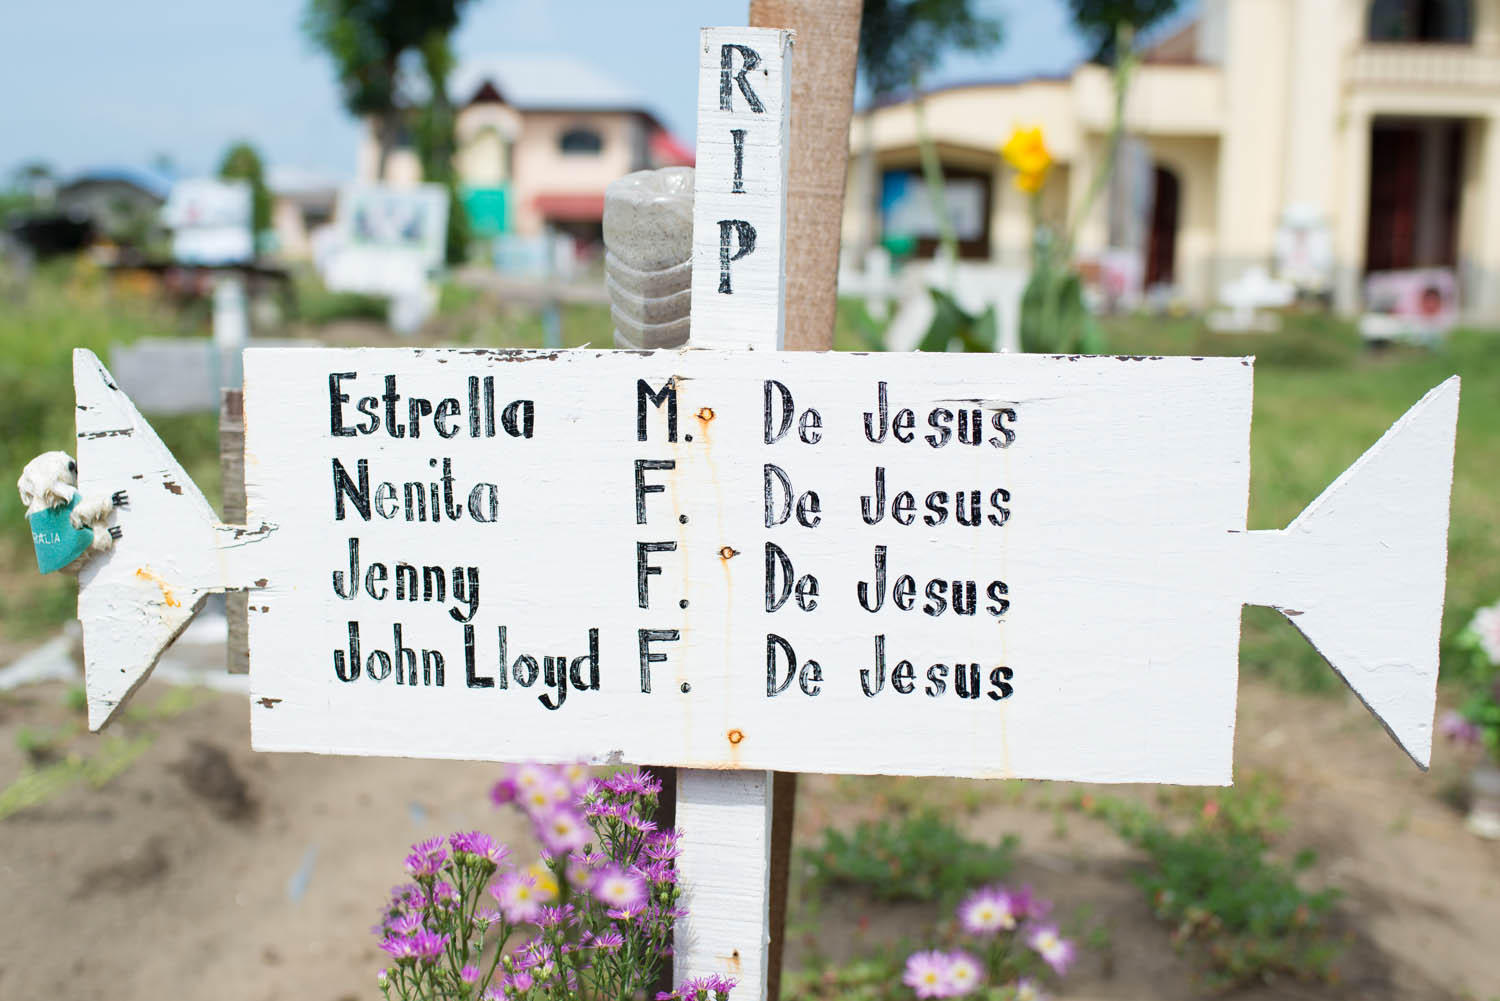 RIP
Estrella M. De Jesus
Nenita F. De Jesus
Jenny F. De Jesus
John Lloyd F. De Jesus